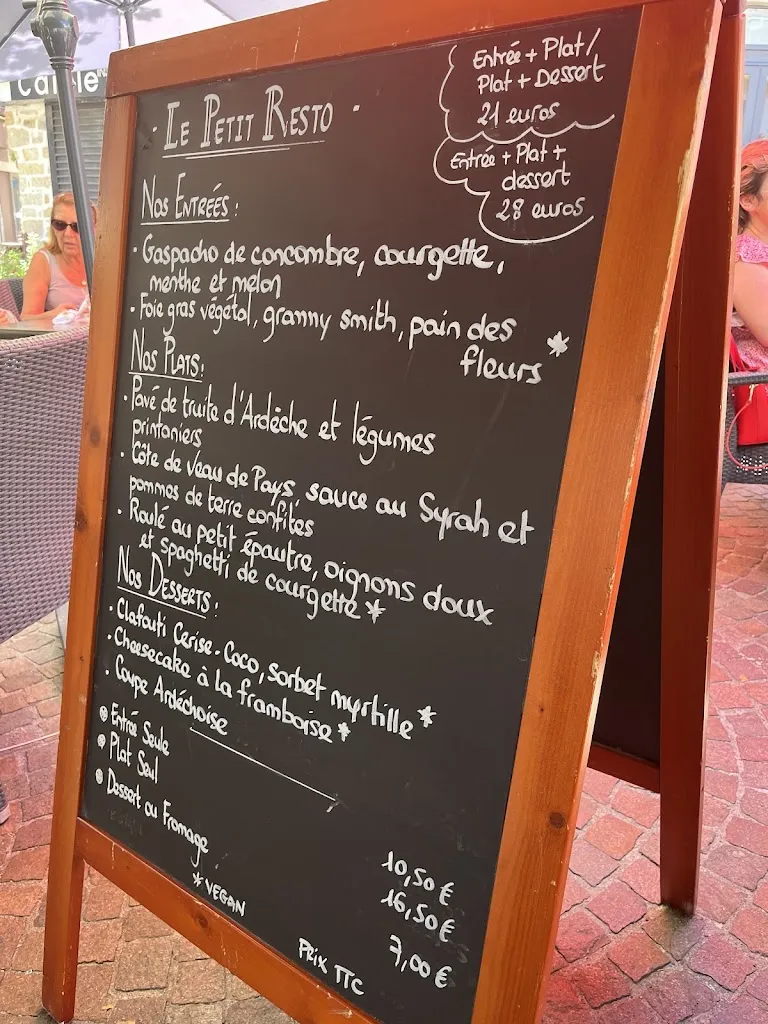 Entrée + Plat /
Plat + Dessert
21 euros
Entrée + Plat +
dessert
28 euros
· LE PETIT RESTO ·
NOS ENTREÉS :
· Gaspacho de concombre, courgette,
menthe et melon
· Foie gras végétal, granny smith, pain des
fleurs *
NOS PLATS :
· Pavé de truite d'Ardèche et légumes
printaniers
· Côte de veau de Pays, sauce au Syrah et
pommes de terre confites
· Roulé au petit épautre, oignons doux
et spaghetti de courgette *
NOS DESSERTS :
· Clafouti Cerise-Coco, sorbet myrtille *
· Cheesecake à la framboise *
· Coupe Ardéchoise
Entrée Seule 10,50 €
Plat Seul 16,50 €
Dessert ou Fromage 7,00 €
* VEGAN
PRIX TTC